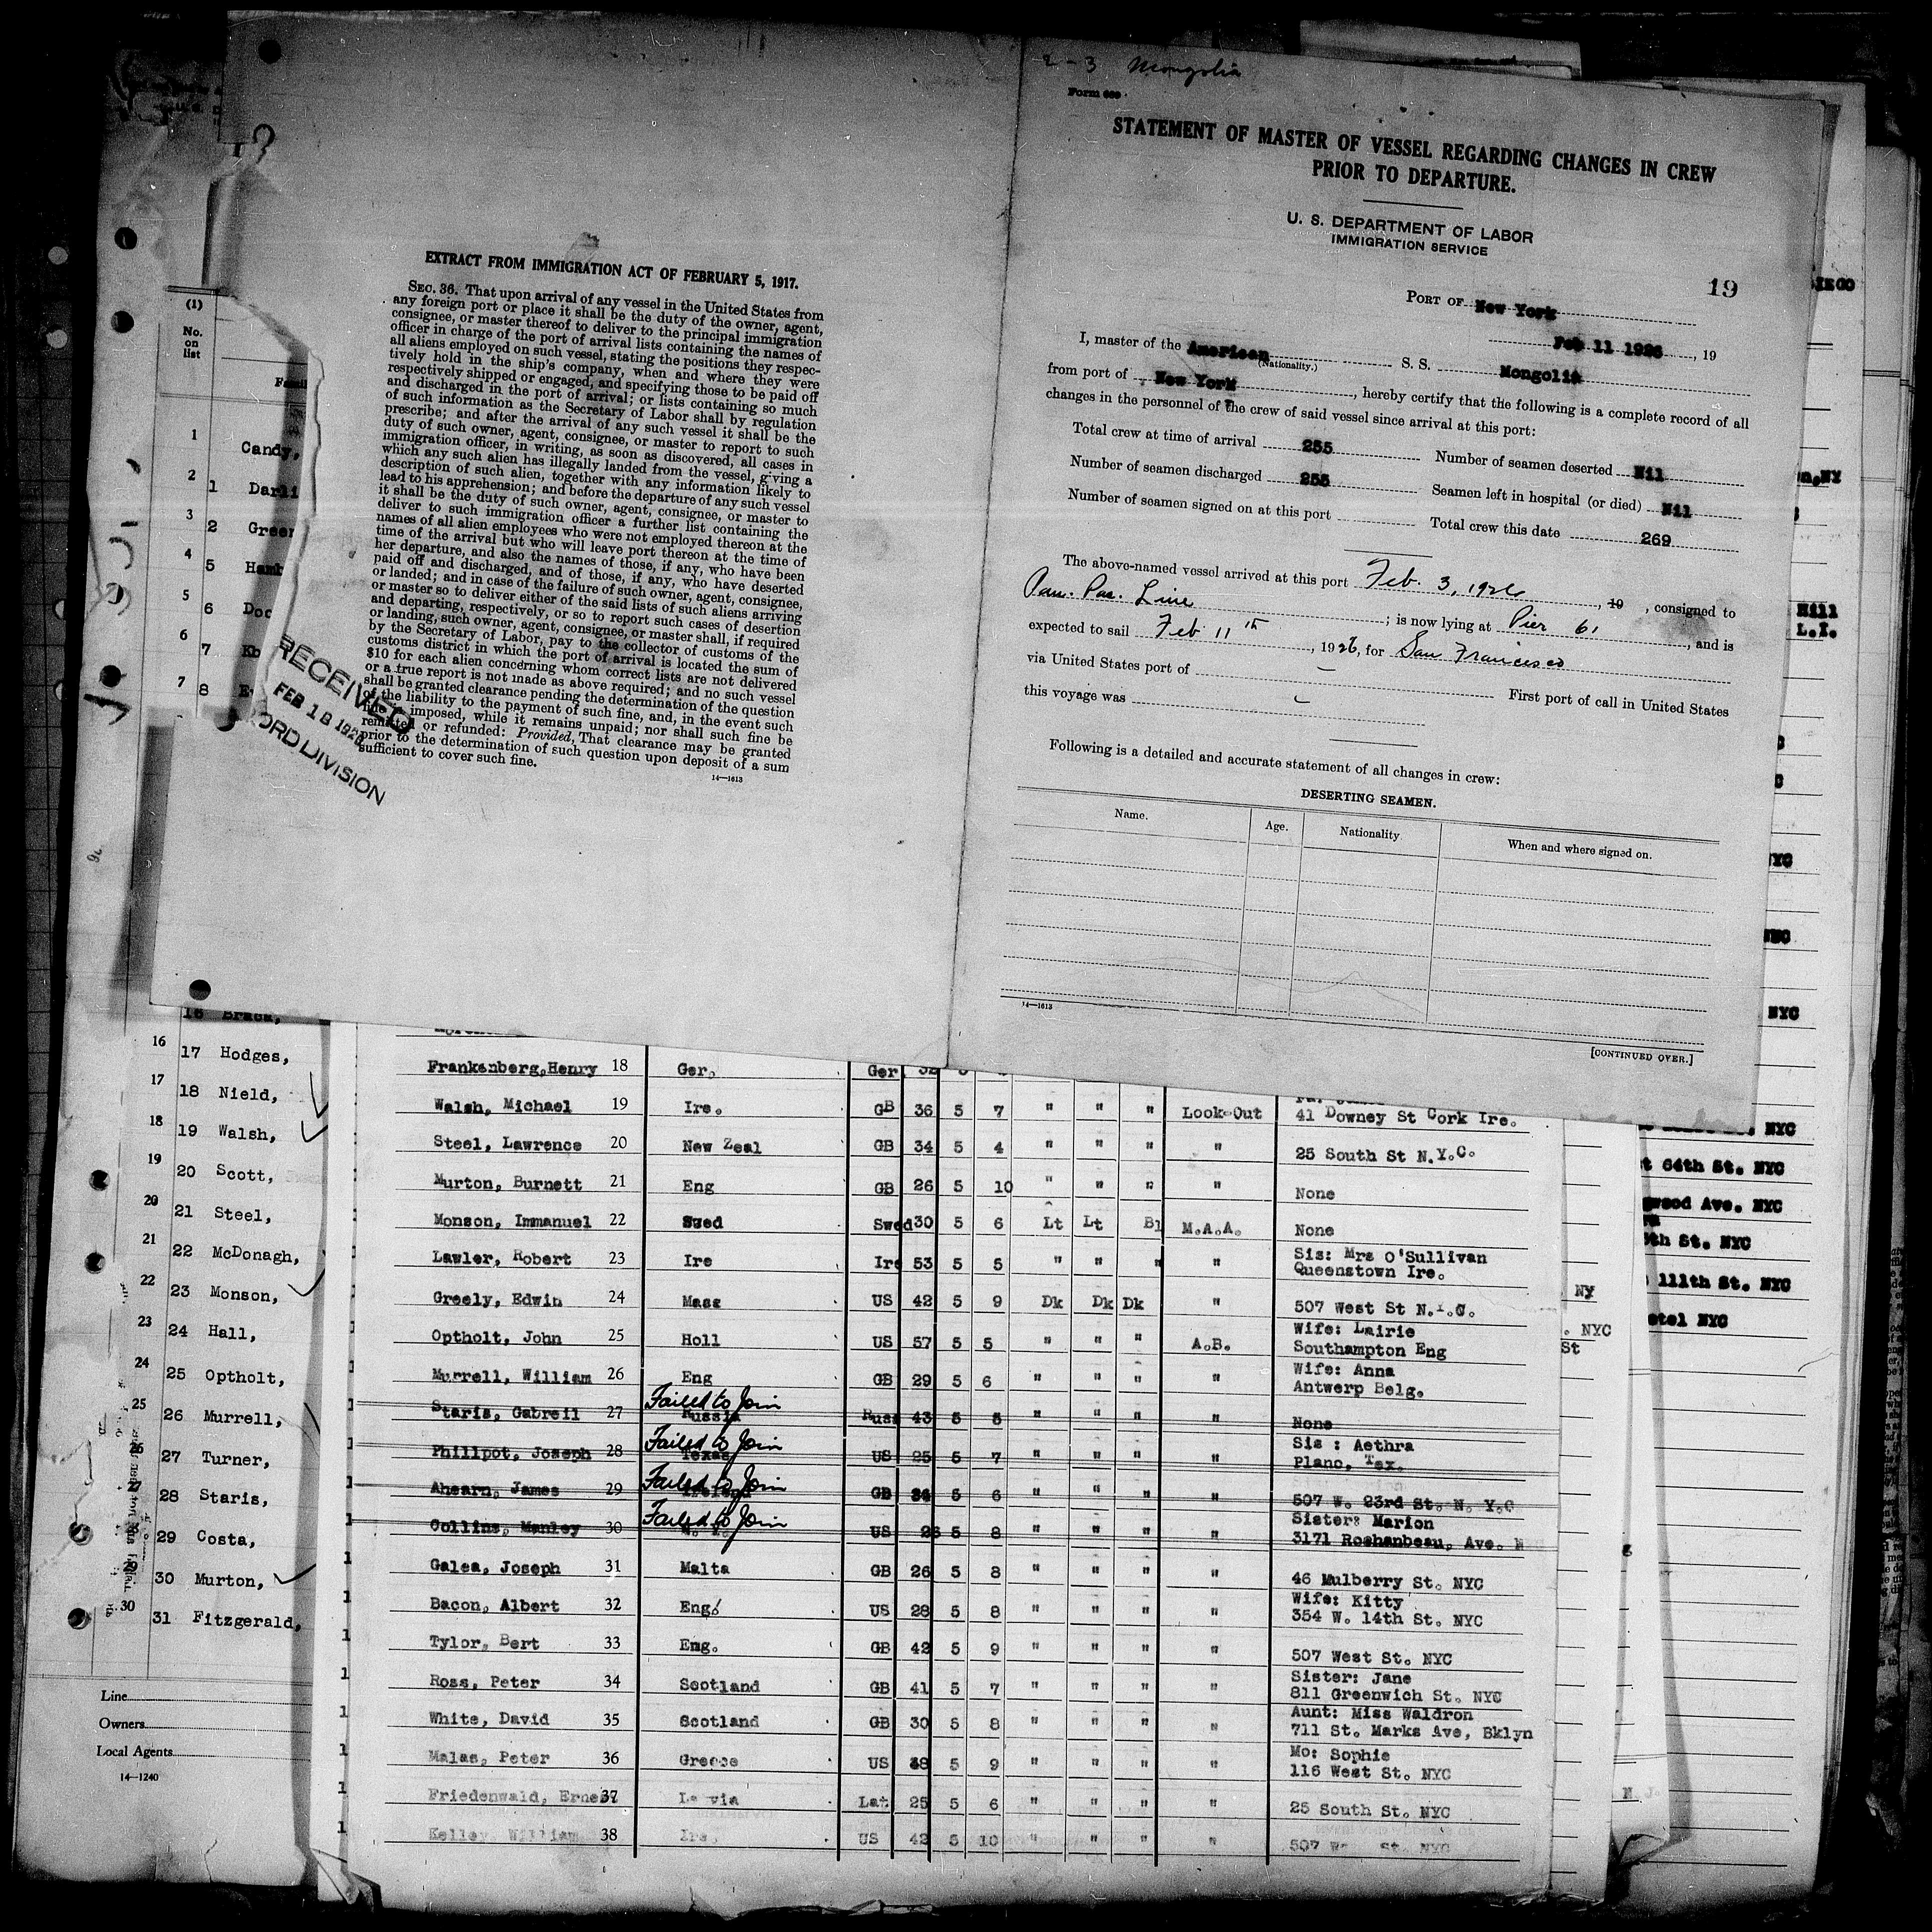 2-3 Mongolia
Form 689
STATEMENT OF MASTER OF VESSEL REGARDING CHANGES IN CREW
PRIOR TO DEPARTURE.
U. S. DEPARTMENT OF LABOR
IMMIGRATION SERVICE
19
PORT OF New York
Feb 11 1926, 19
I, master of the American S. S. Mongolia
(Nationality.)
from port of New York, hereby certify that the following is a complete record of all
changes in the personnel of the crew of said vessel since arrival at this port:
Total crew at time of arrival 255 Number of seamen deserted Nil
Number of seamen discharged 255 Seamen left in hospital (or died) Nil
Number of seamen signed on at this port Total crew this date 269
The above-named vessel arrived at this port Feb. 3, 1926, 19 , consigned to
Pan. Pac. Line ; is now lying at Pier 61, and is
expected to sail Feb 11th, 1926, for San Francisco
via United States port of – First port of call in United States
this voyage was –
Following is a detailed and accurate statement of all changes in crew:
DESERTING SEAMEN.
Name. Age. Nationality When and where signed on.
14—1613
[CONTINUED OVER.]
EXTRACT FROM IMMIGRATION ACT OF FEBRUARY 5, 1917.
SEC. 36. That upon arrival of any vessel in the United States from
any foreign port or place it shall be the duty of the owner, agent,
consignee, or master thereof to deliver to the principal immigration
officer in charge of the port of arrival lists containing the names of
all aliens employed on such vessel, stating the positions they respec-
tively hold in the ship's company, when and where they were
respectively shipped or engaged, and specifying those to be paid off
and discharged in the port of arrival; or lists containing so much
of such information as the Secretary of Labor shall by regulation
prescribe; and after the arrival of any such vessel it shall be the
duty of such owner, agent, consignee, or master to report to such
immigration officer, in writing, as soon as discovered, all cases in
which any such alien has illegally landed from the vessel, giving a
description of such alien, together with any information likely to
lead to his apprehension; and before the departure of any such vessel
it shall be the duty of such owner, agent, consignee, or master to
deliver to such immigration officer a further list containing the
names of all alien employees who were not employed thereon at the
time of the arrival but who will leave port thereon at the time of
her departure, and also the names of those, if any, who have been
paid off and discharged, and of those, if any, who have deserted
or landed; and in case of the failure of such owner, agent, consignee,
or master so to deliver either of the said lists of such aliens arriving
and departing, respectively, or so to report such cases of desertion
or landing, such owner, agent, consignee, or master shall, if required
by the Secretary of Labor, pay to the collector of customs of the
customs district in which the port of arrival is located the sum of
$10 for each alien concerning whom correct lists are not delivered
or a true report is not made as above required; and no such vessel
shall be granted clearance pending the determination of the question
of the liability to the payment of such fine, and, in the event such
fine is imposed, while it remains unpaid; nor shall such fine be
remitted or refunded: Provided, That clearance may be granted
prior to the determination of such question upon deposit of a sum
sufficient to cover such fine.
14—1613
RECEIVED
FEB 18 1926
ORD DIVISION
(1)
No.
on
list
1 Candy,
2 1 Darli
3 2 Green
4 5 Hamb
5 6 Doc
6 7 Kb
7 8
16 Braca,
16 17 Hodges,
17 18 Nield,
18 19 Walsh,
19 20 Scott,
20 21 Steel,
21 22 McDonagh,
22 23 Monson,
23 24 Hall,
24 25 Optholt,
25 26 Murrell,
26 27 Turner,
27 28 Staris,
28 29 Costa,
29 30 Murton,
30 31 Fitzgerald,
Line
Owners
Local Agents
14—1240
Frankenberg,Henry 18 Ger. Ger. 32
Walsh, Michael 19 Ire. GB 36 5 7 " " " Look-Out 41 Downey St Cork Ire.
Steel, Lawrence 20 New Zeal GB 34 5 4 " " " " 25 South St N.Y.C.
Murton, Burnett 21 Eng GB 26 5 10 " " " " None
Monson, Immanuel 22 Swed Swed 30 5 6 Lt Lt Bl M.A.A. None
Lawler, Robert 23 Ire Ire 53 5 5 " " " " Sis: Mrs O'Sullivan
Queenstown Ire.
Greely, Edwin 24 Mass US 42 5 9 Dk Dk Dk " 507 West St N.Y.C.
Optholt, John 25 Holl US 57 5 5 " " " A.B. Wife: Lairie
Southampton Eng
Murrell, William 26 Eng GB 29 5 6 " " " " Wife: Anna
Antwerp Belg.
Failed to Join
Staris, Gabreil 27 Russia Russ 43 5 5 " " " " None
Failed to Join
Phillpot, Joseph 28 Texas US 25 5 7 " " " " Sis : Aethra
Plano, Tex.
Failed to Join
Ahearn, James 29 Ireland GB 34 5 6 " " " " 507 W. 23rd St. N. Y.C
Failed to Join
Collins, Manley 30 N. Y. US 26 5 8 " " " " Sister: Marion
3171 Rochanbeau, Ave. N
Galea, Joseph 31 Malta GB 26 5 8 " " " " 46 Mulberry St. NYC
Bacon, Albert 32 Eng. US 28 5 8 " " " " Wife: Kitty
354 W. 14th St. NYC
Tylor, Bert 33 Eng. GB 42 5 9 " " " " 507 West St. NYC
Ross, Peter 34 Scotland GB 41 5 7 " " " " Sister: Jane
811 Greenwich St. NYC
White, David 35 Scotland GB 30 5 8 " " " " Aunt: Miss Waldron
711 St. Marks Ave, Bklyn
Malas, Peter 36 Greece US 38 5 9 " " " " Mo: Sophie
116 West St. NYC
Friedenwald, Ernest 37 Latvia Lat. 25 5 6 " " " " 25 South St. NYC
Kelley William 38 Ire. US 42 5 10 " " " " 507 We St. NYC
n,NY
Hill
L.I.
NYC
NYC
t 64th St. NYC
gwood Ave. NYC
5th St. NYC
111th St. NYC
otel NYC
NY
. NYC
St
N. J.